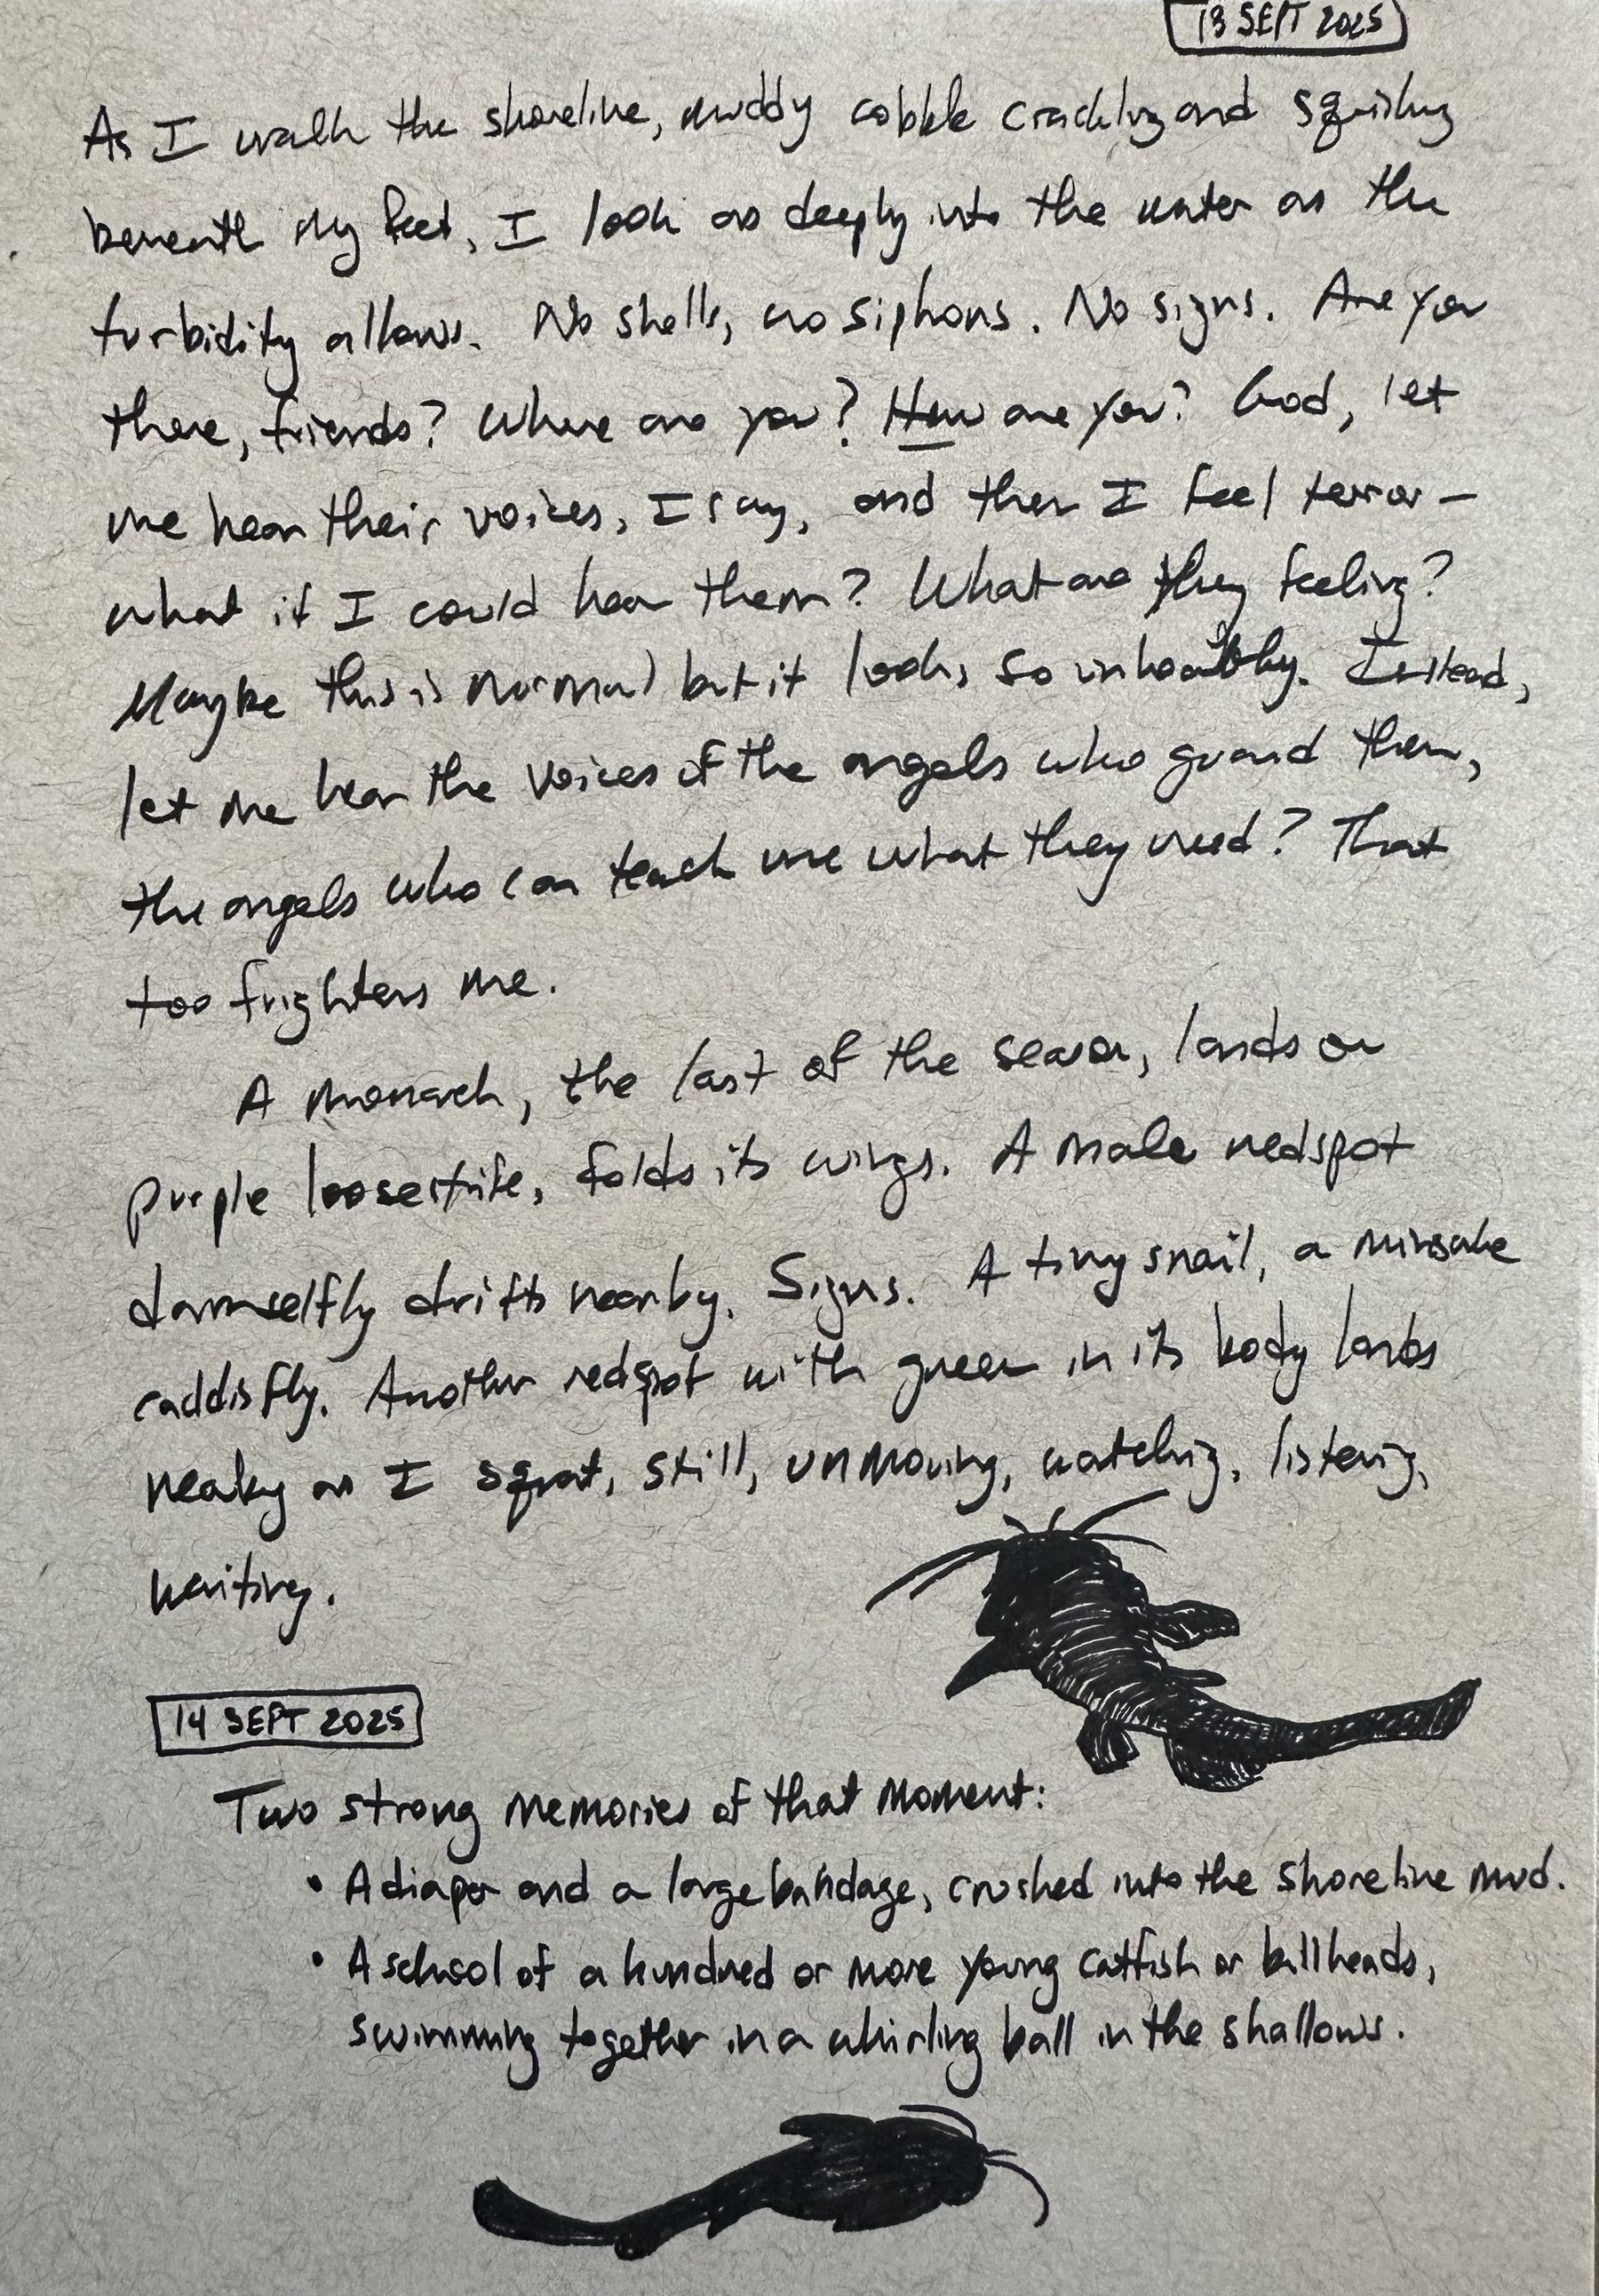 13 SEPT 2025
As I walk the shoreline, muddy cobble crackling and squishing
beneath my feet, I look as deeply into the water as the
turbidity allows. No shells, no siphons. No signs. Are you
there, friends? Where are you? How are you? God, let
me hear their voices, I say, and then I feel terror –
what if I could hear them? What are they feeling?
Maybe this is normal but it looks so unhealthy. Instead,
let me hear the voices of the angels who guard them,
the angels who can teach me what they need? That
too frightens me.
A monarch, the last of the season, lands on
purple loosestrife, folds its wings. A male redspot
damselfly drifts nearby. Signs. A tiny snail, a minute
caddisfly. Another redspot with green in its body lands
nearby as I squat, still, unmoving, watching, listening,
waiting.
14 SEPT 2025
Two strong memories of that moment:
• A diaper and a large bandage, crushed into the shoreline mud.
• A school of a hundred or more young catfish or bullheads,
swimming together in a whirling ball in the shallows.